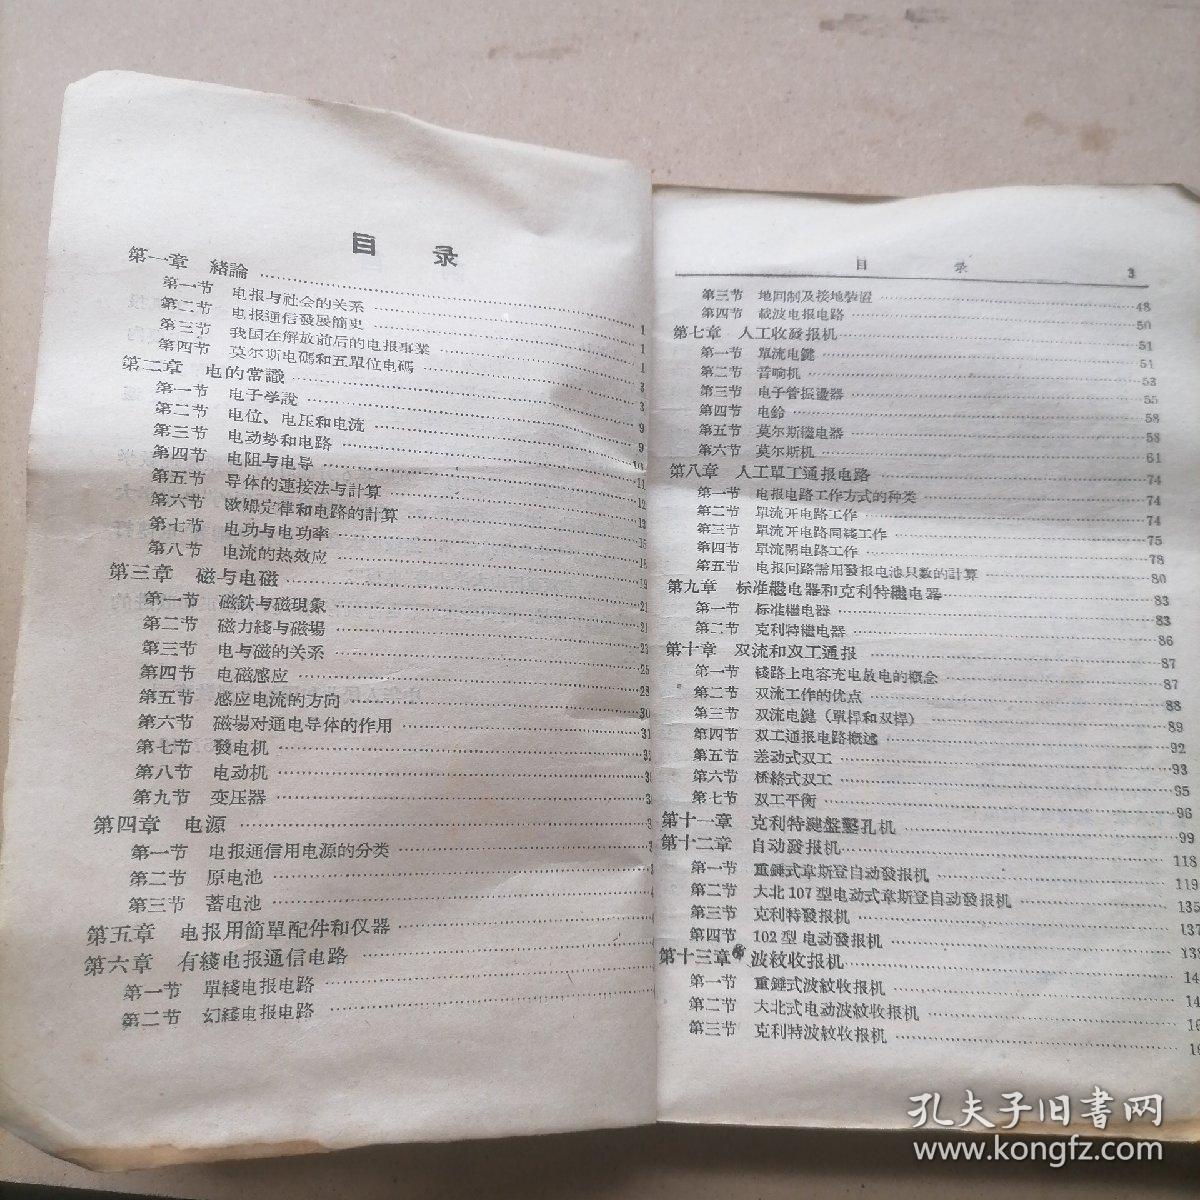 目 录
第一章 緒論
第一节 电报与社会的关系 1
第二节 电报通信發展簡史 1
第三节 我国在解放前后的电报事業 1
第四节 莫尔斯电碼和五單位电碼 3
第二章 电的常識 3
第一节 电子学說 9
第二节 电位、电压和电流 9
第三节 电动勢和电路 10
第四节 电阻与电导 11
第五节 导体的連接法与計算 12
第六节 欧姆定律和电路的計算 13
第七节 电功与电功率
第八节 电流的热效应
第三章 磁与电磁
第一节 磁鉄与磁現象
第二节 磁力綫与磁場
第三节 电与磁的关系
第四节 电磁感应
第五节 感应电流的方向
第六节 磁場对通电导体的作用
第七节 發电机
第八节 电动机
第九节 变压器
第四章 电源
第一节 电报通信用电源的分类
第二节 原电池
第三节 蓄电池
第五章 电报用簡單配件和仪器
第六章 有綫电报通信电路
第一节 單綫电报电路
第二节 幻綫电报电路
目 录 3
第三节 地回制及接地裝置 48
第四节 載波电报电路 50
第七章 人工收發报机 51
第一节 單流电鍵 51
第二节 音响机 53
第三节 电子管振盪器 55
第四节 电鈴 58
第五节 莫尔斯繼电器 58
第六节 莫尔斯机 61
第八章 人工單工通报电路 74
第一节 电报电路工作方式的种类 74
第二节 單流开电路工作 74
第三节 單流开电路同綫工作 75
第四节 單流閉电路工作 78
第五节 电报回路需用發报电池只数的計算 80
第九章 标准繼电器和克利特繼电器 83
第一节 标准繼电器 83
第二节 克利特繼电器 86
第十章 双流和双工通报 87
第一节 綫路上电容充电放电的概念 87
第二节 双流工作的优点 88
第三节 双流电鍵（單桿和双桿） 89
第四节 双工通报电路概述 92
第五节 差动式双工 93
第六节 桥絡式双工 95
第七节 双工平衡 96
第十一章 克利特鍵盤鑿孔机 99
第十二章 自动發报机 118
第一节 重錘式韋斯登自动發报机 119
第二节 大北107型电动式韋斯登自动發报机 135
第三节 克利特發报机 137
第四节 102型电动發报机 138
第十三章 波紋收报机 14
第一节 重錘式波紋收报机 14
第二节 大北式电动波紋收报机 16
第三节 克利特波紋收报机 16
孔夫子旧書网
www.kongfz.com